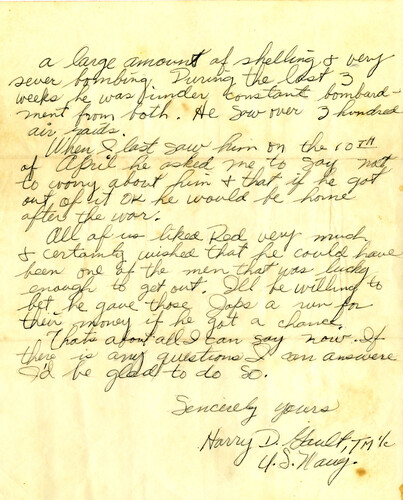 a large amount of shelling & very
sever bombing. During the last 3
weeks he was under constant bombard-
ment from both. He saw over 3 hundred
air raids.
When I last saw him on the 10TH
of April he asked me to say not
to worry about him & that if he got
out of it OK he would be home
after the war.
All of us liked Red very much
& certainly wished that he could have
been one of the men that was lucky
enough to get out. I'll be willing to
bet he gave those Japs a run for
their money if he got a chance.
Thats about all I can say now. If
there is any questions I can answere
I'd be glad to do so.
Sincerely yours
Harry D. Gault, TM 1/c
U.S. Navy.